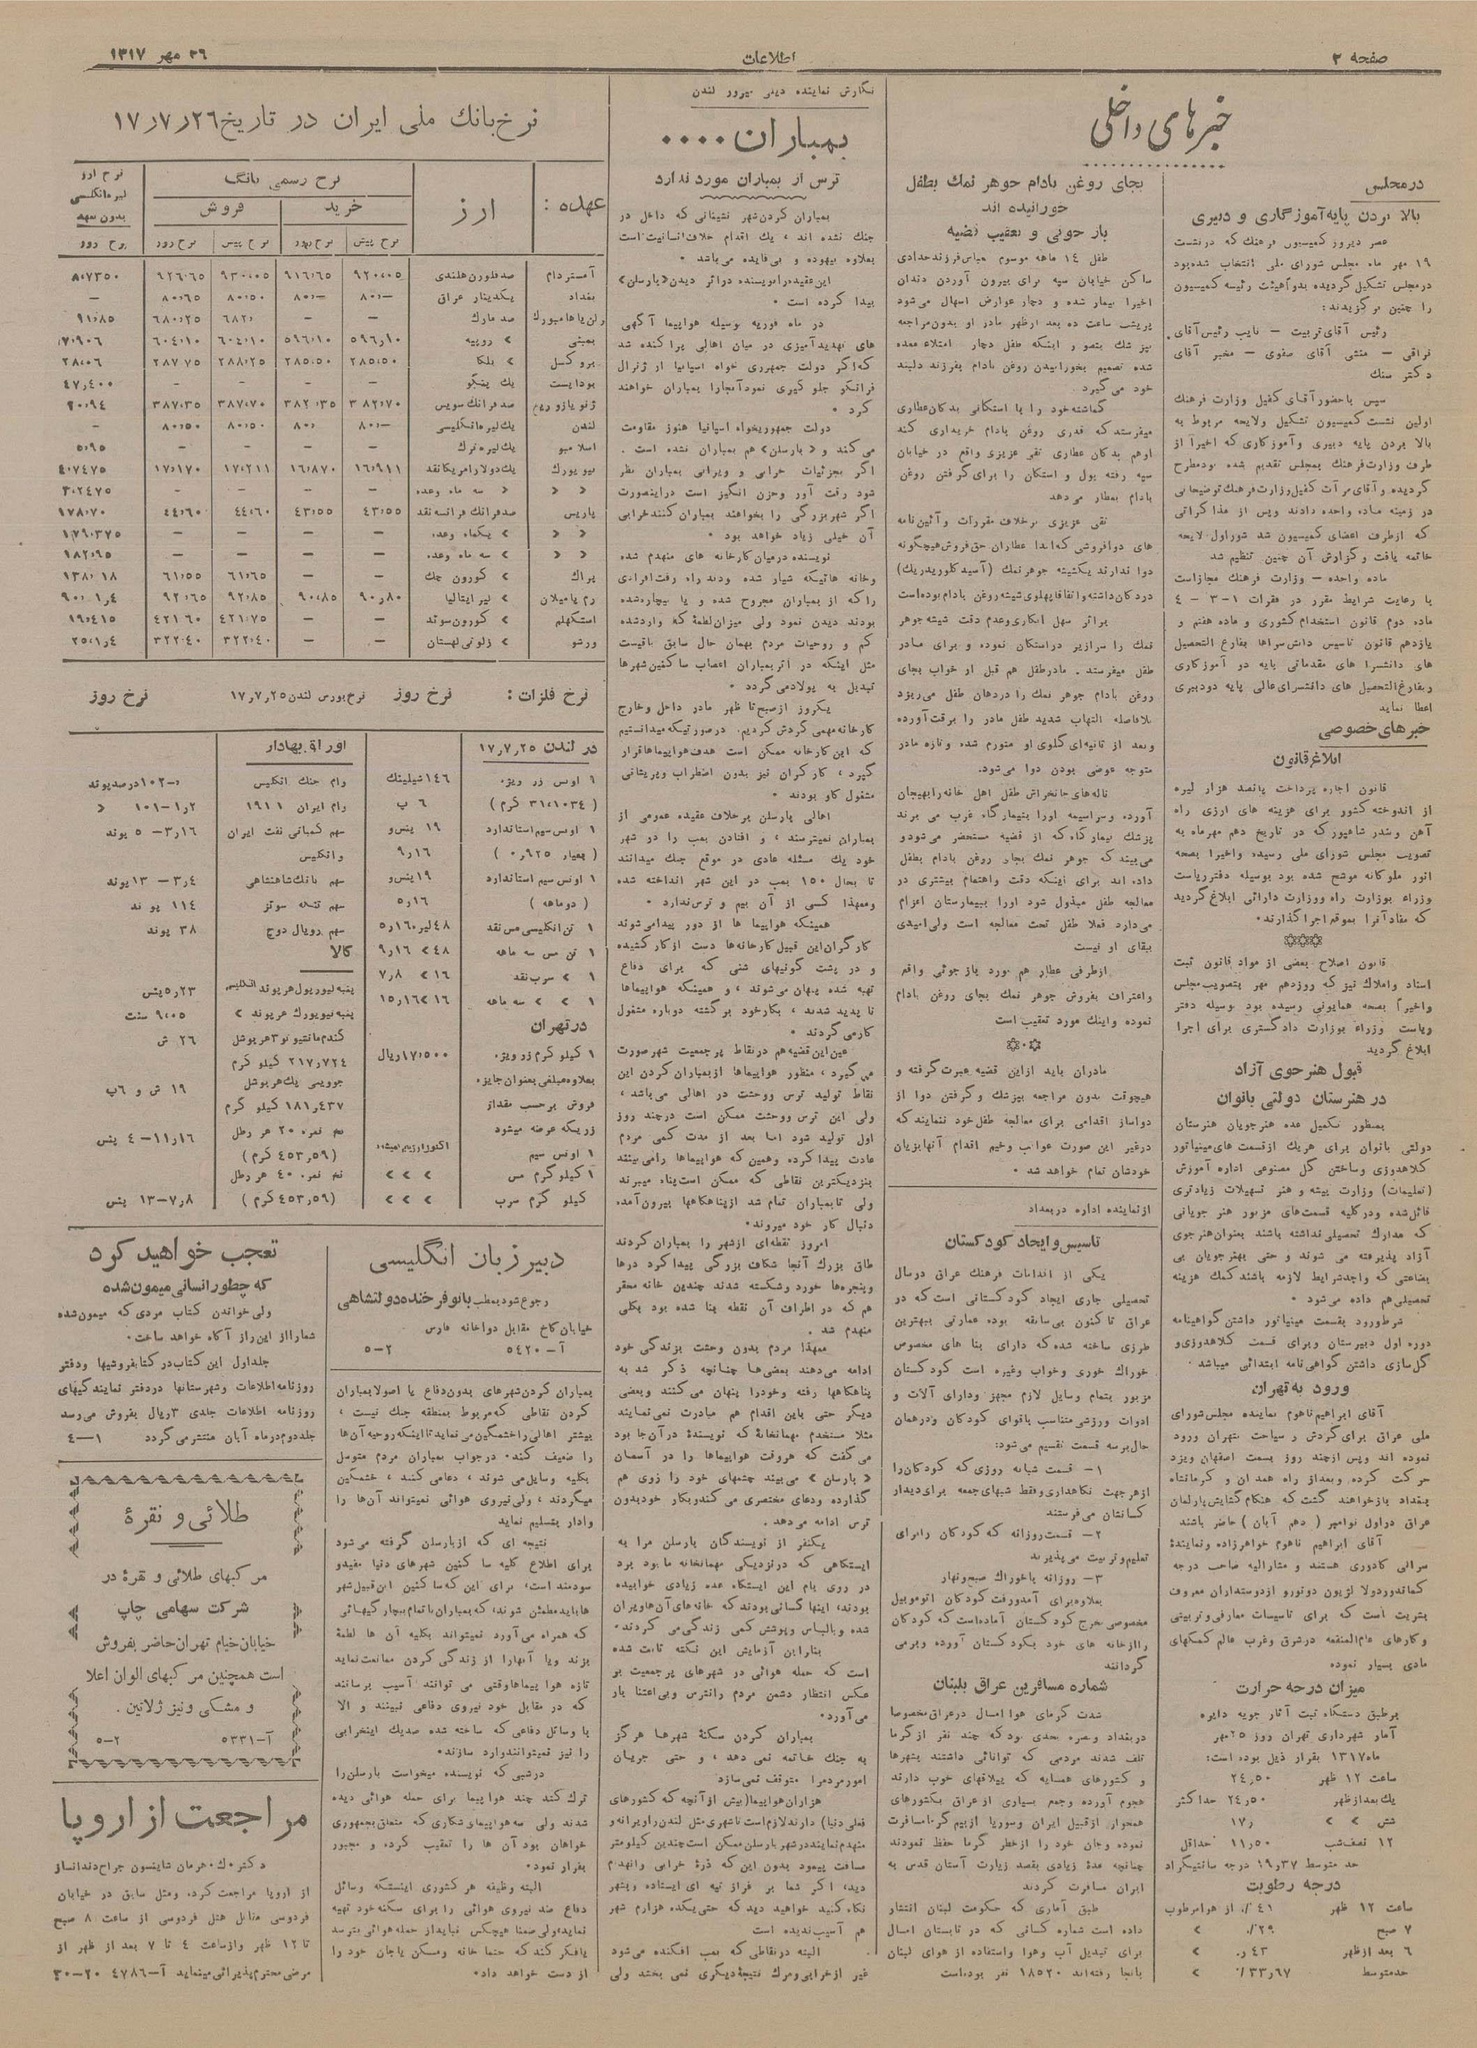 صفحه ۲
اطلاعات
۲۶ مهر ۱۳۱۷
خبرهای داخلی
در مجلس
بالا بردن پایه آموزگاری و دبیری
عصر دیروز کمیسیون فرهنگ که در نشست
۱۹ مهر ماه مجلس شورای ملی انتخاب شده بود
در مجلس تشکیل گردیده بدوا هیئت رئیسه کمیسیون
را چنین برگزیدند:
رئیس آقای تربیت – نایب رئیس آقای
نراقی – منشی آقای صفوی – مخبر آقای
دکتر سنگ
سپس با حضور آقای کفیل وزارت فرهنگ
اولین نشست کمیسیون تشکیل ولایحه مربوط به
بالا بردن پایه دبیری و آموزگاری که اخیرا از
طرف وزارت فرهنگ بمجلس تقدیم شده بود مطرح
گردیده و آقای مرآت کفیل وزارت فرهنگ توضیحاتی
در زمینه ماده واحده دادند و پس از مذاکراتی
که از طرف اعضای کمیسیون شد شور اول لایحه
خاتمه یافت و گزارش آن چنین تنظیم شد
ماده واحده – وزارت فرهنگ مجاز است
با رعایت شرایط مقرر در فقرات ۱-۳-۴
ماده دوم قانون استخدام کشوری و ماده هفتم و
یازدهم قانون تاسیس دانش سراها بفارغ التحصیل
های دانشسرا های مقدماتی پایه دو آموزگاری
و بفارغ التحصیل های دانشسرای عالی پایه دو دبیری
اعطا نماید
خبرهای خصوصی
ابلاغ قانون
قانون اجازه پرداخت پانصد هزار لیره
از اندوخته کشور برای هزینه های ارزی راه
آهن و بندر شاهپور که در تاریخ دهم مهر ماه به
تصویب مجلس شورای ملی رسیده و اخیرا بصحه
انور ملوکانه موشح شده بود بوسیله دفتر ریاست
وزراء بوزارت راه و وزارت دارائی ابلاغ گردید
که مفاد آنرا بموقع اجرا گذارند*
قانون اصلاح بعضی از مواد قانون ثبت
اسناد و املاک نیز که روز دهم مهر بتصویب مجلس
و اخیرا بصحه همایونی رسیده بود بوسیله دفتر
ریاست وزراء بوزارت دادگستری برای اجرا
ابلاغ گردید
قبول هنرجوی آزاد
در هنرستان دولتی بانوان
بمنظور تکمیل عده هنرجویان هنرستان
دولتی بانوان برای هریک از قسمت های مینیاتور
گلاهدوزی و ساختن گل مصنوعی اداره آموزش
(تعلیمات) وزارت پیشه و هنر تسهیلات زیادتری
قائل شده و در کلیه قسمت های مزبور هنر جویانی
که مدارک تحصیلی نداشته باشند بعنوان هنرجوی
آزاد پذیرفته می شوند و حتی بهنرجویان بی
بضاعتی که واجد شرایط لازمه باشند کمک هزینه
تحصیلی هم داده می شود*
شرط ورود بقسمت مینیاتور داشتن گواهینامه
دوره اول دبیرستان و برای قسمت کلاهدوزی و
گل سازی داشتن گواهی نامه ابتدائی میباشد*
ورود به تهران
آقای ابراهیم ناهوم نماینده مجلس شورای
ملی عراق برای گردش و سیاحت بتهران ورود
نموده اند و پس از چند روز بسمت اصفهان و یزد
حرکت کرده و بعد از راه همدان و کرمانشاه
ببغداد باز خواهند گشت که هنگام گشایش پارلمان
عراق در اول نوامبر (دهم آبان) حاضر باشند
آقای ابراهیم ناهوم خواهرزاده و نماینده
سرالی کادوری هستند و مشارالیه صاحب درجه
کماندور دولا لژیون دونورو از دوستداران معروف
بشریت است که برای تاسیسات معارفی و تربیتی
و کارهای عام المنفعه در شرق و غرب عالم کمکهای
مادی بسیار نموده
میزان درجه حرارت
برطبق دستگاه ثبت آثار جویه دایره
آمار شهرداری تهران روز ۲۵ مهر
ماه ۱۳۱۷ بقرار ذیل بوده است:
ساعت ۱۲ ظهر ۲۴٫۵۰
یک بعد از ظهر ۲۴٫۵۰ حداکثر
شش > > ۱۷٫
۱۲ نصف شب ۱۱٫۵۰ حداقل
حد متوسط ۱۹٫۳۷ درجه سانتیگراد
درجه رطوبت
ساعت ۱۲ ظهر ۴۱٪ از هوا مرطوب
۷ صبح ۲۹٪ >
۶ بعد از ظهر ۴۳٪ >
حد متوسط ۳۳٫۶۷٪ >
بجای روغن بادام جوهر نمک بطفل
خورانیده اند
بازجوئی و تعقیب قضیه
طفل ۱۴ ماهه موسوم بعباس فرزند حدادی
ساکن خیابان سپه برای بیرون آوردن دندان
اخیرا بیمار شده و دچار عوارض اسهال می شود
پریشب ساعت ده بعد از ظهر مادر او بدون مراجعه
بپزشک بتصور اینکه طفل دچار امتلاء معده
شده تصمیم بخورانیدن روغن بادام بفرزند دلبند
خود می گیرد
گماشته خود را با استکانی بدکان عطاری
میفرستد که قدری روغن بادام خریداری کند
او هم بدکان عطاری تقی عزیزی واقع در خیابان
سپه رفته پول و استکان را برای گرفتن روغن
بادام بعطار می دهد
تقی عزیزی برخلاف مقررات و آئین نامه
های دوافروشی که ابدا عطاران حق فروش هیچگونه
دوا ندارند یکشیشه جوهر نمک (آسید کلوریدریک)
در دکان داشته و اتفاقا پهلوی شیشه روغن بادام بوده است
براثر سهل انگاری و عدم دقت شیشه جوهر
نمک را سرازیر در استکان نموده و برای مادر
طفل میفرستد. مادر طفل هم قبل از خواب بجای
روغن بادام جوهر نمک را در دهان طفل می ریزد
بلافاصله التهاب شدید طفل مادر را برقت آورده
و بعد از ثانیه ای گلوی او متورم شده و تازه مادر
متوجه عوضی بودن دوا می شود.
ناله های جانخراش طفل اهل خانه را بهیجان
آورده و سراسیمه او را بتیمارگاه غرب می برند
پزشک بیمارگاه که از قضیه مستحضر می شود و
می بیند که جوهر نمک بجای روغن بادام بطفل
داده اند برای اینکه دقت و اهتمام بیشتری در
معالجه طفل مبذول شود او را ببیمارستان اعزام
می دارد فعلا طفل تحت معالجه است ولی امیدی
ببقای او نیست
از طرفی عطار هم مورد بازجوئی واقع
و اعتراف بفروش جوهر نمک بجای روغن بادام
نموده و اینک مورد تعقیب است
مادران باید از این قضیه عبرت گرفته و
هیچوقت بدون مراجعه بپزشک و گرفتن دوا از
دواساز اقدامی برای معالجه طفل خود ننمایند که
در غیر این صورت عواقب وخیم اقدام آنها بزیان
خودشان تمام خواهد شد*
از نماینده اداره در بغداد
تاسیس و ایجاد کودکستان
یکی از اقدامات فرهنگ عراق در سال
تحصیلی جاری ایجاد کودکستانی است که در
عراق تاکنون بی سابقه بوده عمارتی ببهترین
طرزی ساخته شده که دارای بنا های مخصوص
خوراک خوری و خواب و غیره است کودکستان
مزبور بتمام وسایل لازم مجهز و دارای آلات و
ادوات ورزشی متناسب باقوای کودکان و در همان
حال بر سه قسمت تقسیم می شود:
۱– قسمت شبانه روزی که کودکان را
از هر جهت نگاهداری و فقط شبهای جمعه برای دیدار
کسانشان می فرستند
۲– قسمت روزانه که کودکان را برای
تعلیم و تربیت می پذیرند
۳– روزانه باخوراک صبح و نهار
بعلاوه برای آمد و رفت کودکان اتوموبیل
مخصوصی بخرج کودکستان آماده است که کودکان
را از خانه های خود بکودکستان آورده و برمی
گردانند
شماره مسافرین عراق بلبنان
شدت گرمای هوا امسال در عراق مخصوصا
در بغداد و بصره بحدی بود که چند نفر از گرما
تلف شدند مردمی که توانائی داشتند بشهرها
و کشورهای همسایه که ییلاقهای خوب دارند
هجوم آورده و جمع بسیاری از عراق بکشورهای
همجوار از قبیل ایران و سوریا از بیم گرما مسافرت
نموده و جان خود را از خطر گرما حفظ نمودند
چنانچه عده زیادی بقصد زیارت آستان قدس به
ایران مسافرت کردند
طبق آماری که حکومت لبنان انتشار
داده است شماره کسانی که در تابستان امسال
برای تبدیل آب و هوا و استفاده از هوای لبنان
بآنجا رفته اند ۱۸۵۲۰ نفر بوده است
نگارش نماینده دیلی میرور لندن
بمباران ۰۰۰۰
ترس از بمباران مورد ندارد
بمباران کردن شهر نشینانی که داخل در
جنگ نشده اند، یک اقدام خلاف انسانیت است
بعلاوه بیهوده و بی فایده می باشد*
این عقیده را نویسنده در اثر دیدن «بارسلن»
پیدا کرده است*
در ماه فوریه بوسیله هواپیما آگهی
های تهدید آمیزی در میان اهالی پراکنده شد
که اگر دولت جمهوری خواه اسپانیا از ژنرال
فرانکو جلوگیری نمود آنجا را بمباران خواهند
کرد*
دولت جمهوریخواه اسپانیا هنوز مقاومت
می کند و «بارسلن» هم بمباران نشده است.
اگر بجزئیات خرابی و ویرانی بمباران نظر
شود رقت آور و حزن انگیز است در اینصورت
اگر شهر بزرگی را بخواهند بمباران کنند خرابی
آن خیلی زیاد خواهد بود*
نویسنده در میان کارخانه های منهدم شده
و خانه هائیکه شیار شده بودند راه رفت افرادی
را که از بمباران مجروح شده و یا بیچاره شده
بودند دیدن نمود ولی میزان لطمه که وارد شده
کم و روحیات مردم بهمان حال سابق باقیست
مثل اینکه در اثر بمباران اعصاب ساکنین شهرها
تبدیل به پولاد می گردد*
یکروز از صبح تا ظهر مادر داخل و خارج
کارخانه مهمی گردش کردیم. در صورتیکه میدانستیم
که این کارخانه ممکن است هدف هواپیماها قرار
گیرد، کارکران نیز بدون اضطراب و پریشانی
مشغول کار بودند*
اهالی بارسلن برخلاف عقیده عمومی از
بمباران نمیترسند، و افتادن بمب را در شهر
خود یک مسئله عادی در موقع جنگ میدانند
تا بحال ۱۵۰ بمب در این شهر انداخته شده
و معهذا کسی از آن بیم و ترس ندارد*
همینکه هواپیما ها از دور پیدا می شوند
کارگران این قبیل کارخانه ها دست از کار کشیده
و در پشت گونیهای شنی که برای دفاع
تهیه شده پنهان می شوند، و همینکه هواپیماها
ناپدید شدند، بکار خود برگشته دوباره مشغول
کار می گردند*
عین این قضیه هم در نقاط پرجمعیت شهر صورت
می گیرد، منظور هواپیماها از بمباران کردن این
نقاط تولید ترس و وحشت در اهالی می باشد،
ولی این ترس و وحشت ممکن است در چند روز
اول تولید شود اما بعد از مدت کمی مردم
عادت پیدا کرده و همین که هواپیماها را می بینند
بنزدیکترین نقاطی که ممکن است پناه میبرند
ولی تا بمباران تمام شد از پناهگاهها بیرون آمده
دنبال کار خود میروند*
امروز نقطه ای از شهر را بمباران کردند
طاق بزرگ آنجا شکاف بزرگی پیدا کرد درها
و پنجره ها خورد و شکسته شدند چندین خانه محقر
هم که در اطراف آن نقطه بنا شده بود بکلی
منهدم شد.
معهذا مردم بدون وحشت بزندگی خود
ادامه می دهند بعضی ها چنانچه ذکر شد به
پناهگاهها رفته و خود را پنهان می کنند و بعضی
دیگر حتی باین اقدام هم مبادرت نمی نمایند
مثلا مستخدم مهمانخانه که نویسنده در آن جا بود
می گفت که هر وقت هواپیماها را در آسمان
«بارسلن» می بیند چشمهای خود را روی هم
گذارده و دعای مختصری می کند و بکار خود بدون
ترس ادامه می دهد.
یکنفر از نویسندگان بارسلن مرا به
ایستگاهی که در نزدیکی مهمانخانه ما بود برد
در روی بام این ایستگاه عده زیادی خوابیده
بودند، اینها کسانی بودند که خانه های آن ها ویران
شده و با لباس و پوشش کمی زندگی می کردند*
بنابر این آزمایش این نکته ثابت شده
است که حمله هوائی در شهرهای پرجمعیت بر
عکس انتظار دشمن مردم را نترس و بی اعتنا بار
می آورد*
بمباران کردن سکنه شهرها هرگز
به جنگ خاتمه نمی دهد، و حتی جریان
امور مردم را متوقف نمی سازد
هزاران هواپیما (بیش از آنچه که کشورهای
فعلی دنیا) دارند لازم است تا شهری مثل لندن را ویرانه و
منهدم نمایند در شهر بارسلن ممکن است چندین کیلومتر
مسافت پیمود بدون این که ذرۀ خرابی و انهدام
دید، اگر شما بر فراز تپه ای ایستاده و بشهر
نگاه کنید خواهید دید که حتی یکده هزارم شهر
هم آسیب ندیده است
البته در نقاطی که بمب افکنده می شود
غیر از خرابی و مرگ نتیجه دیگری نمی بخشد ولی
نرخ بانک ملی ایران در تاریخ ۱۷٫۷٫۲۶
عهده: ارز نرخ رسمی بانک نرخ ارز لیره انگلیسی بدون سهمیه
خرید فروش
نرخ پیش نرخ روز نرخ پیش نرخ روز نرخ روز
آمستردام صد فلورن هلندی ۹۲۰٫۰۵ ۹۱۶٫۶۵ ۹۳۰٫۰۵ ۹۲۶٫۶۵ ۸٫۷۳۵۰
بغداد یکدینار عراق ۸۰٫– ۸۰٫– ۸۰٫۵۰ ۸۰٫۶۵ –
برلن یا هامبورک صد مارک – – ۶۸۲٫ ۶۸۰٫۲۵ ۹۱٫۸۵
بمبئی > روپیه ۵۹۶٫۱۰ ۵۹۶٫۱۰ ۶۰۴٫۱۰ ۶۰۴٫۱۰
بروکسل > بلگا ۲۸۵٫۵۰ ۲۸۵٫۵۰ ۲۸۸٫۲۵ ۲۸۷٫۷۵ ۲۸٫۰۶
بوداپست یک پنگو – – – – ۴۷٫۴۰۰
ژنو یا زوریخ صد فرانک سویس ۳۸۲٫۷۰ ۳۸۲٫۳۵ ۳۸۷٫۷۰ ۳۸۷٫۳۵ ۲۰٫۹۴
لندن یک لیره انگلیسی ۸۰٫– ۸۰٫ ۸۰٫۵۰ ۸۰٫۵۰ –
اسلامبو یک لیره ترک – – – – ۵٫۹۵
نیویورک یک دولار امریکا نقد ۱۶٫۹۱۱ ۱۶٫۸۷۰ ۱۷٫۲۱۱ ۱۷٫۱۷۰ ۴٫۷۴۷۵
> > > سه ماه وعده – – – –
پاریس صد فرانک فرانسه نقد ۴۳٫۵۵ ۴۳٫۵۵ ۴۴٫۶۰ ۴۴٫۶۰ ۱۷۸٫۷۰
> > > یکماه وعده – – – –
> > > سه ماه وعده – – – –
پراک > کورون چک – – ۶۱٫۶۵ ۶۱٫۵۵ ۱۳۸٫۱۸
رم یا میلان > لیر ایتالیا ۹۰٫۸۰ ۹۰٫۸۵ ۹۲٫۸۵ ۹۲٫۶۵ ۹۰٫۱٫۴
استکهلم > کورون سوئد – – ۴۲۱٫۷۵ ۴۲۱٫۶۰ ۱۹٫۴۱۵
ورشو > زلوتی لهستان – – ۳۲۲٫۴۰ ۳۲۲٫۴۰ ۲۵٫۱٫۴
نرخ فلزات: نرخ روز نرخ بورس لندن ۱۷٫۷٫۲۵ نرخ روز
در لندن ۱۷٫۷٫۲۵
۱ اونس زر ویژه ۱۴۶ شیلینک
(۳۱٫۱۰۳۴ گرم) ۶ پ
۱ اونس سیم استاندارد ۱۹ پنس و
(بعیار ۰٫۹۲۵) ۹٫۱۶
۱ اونس سیم استاندارد ۱۹ پنس و
(دو ماهه) ۵٫۱۶
۱ تن انگلیسی مس نقد ۴۸ لیره ۵٫۱۶
۱ تن مس سه ماهه ۴۸ > ۹٫۱۶
۱ > سرب نقد ۱۶ > ۷٫۸
۱ > > سه ماهه ۱۶ > ۱۵٫۱۶
در تهران
۱ کیلو گرم زر ویژه ۱۷٫۵۰۰ ریال
بعلاوه مبلغی بعنوان جایزه
فروش بر حسب مقدار
زریکه عرضه میشود
۱ اونس سیم
۱ کیلو گرم مس > > >
کیلو گرم سرب > > >
اوراق بهادار
وام جنگ انگلیس
وام ایران ۱۹۱۱ ۱۰۱–۱٫۲ >
سهم کمپانی نفت ایران ۵–۳٫۱۶ پوند
و انگلیس
سهم بانک شاهنشاهی ۱۳–۳٫۴ پوند
سهم تنگه سوئز ۱۱۴ پوند
سهم رویال دوچ ۳۸ پوند
کالا
پنبه لیورپول هر پوند انگلیسی ۵٫۲۳ پنس
پنبه نیویورک هر پوند > ۹٫۰۵ سنت
گندم مانتیو نو ۳ هر بوشل ۲۶ ش
۲۱۷٫۷۲۴ کیلو گرم
جو ویسی یک هر بوشل ۱۹ ش و ۶ پ
۱۸۱٫۴۳۷ کیلو گرم
نخ نمره ۲۰ هر رطل ۱۱٫۱۶–۴ پنس
(۴۵۳٫۵۹ گرم)
نخ نمره ۴۰ هر رطل
(۴۵۳٫۵۹ گرم) ۷٫۸–۱۳ پنس
دبیر زبان انگلیسی
رجوع شود بمطب بانو فرخنده دولتشاهی
خیابان کاخ مقابل دواخانه فارس
آ–۵۴۲۰ ۲–۵
بمباران کردن شهرهای بدون دفاع یا اصولا بمباران
کردن نقاطی که مربوط بمنطقه جنگ نیست،
بیشتر اهالی را خشمگین می نماید تا اینکه روحیه آن ها
را ضعیف کند* در جواب بمباران مردم متوسل
بکلیه وسایل می شوند، دعا می کنند، خشمگین
میگردند، ولی نیروی هوائی نمیتواند آن ها را
وادار بتسلیم نماید
نتیجه ای که از بارسلن گرفته می شود
برای اطلاع کلیه ساکنین شهرهای دنیا مفید و
سودمند است، برای این که ساکنین این قبیل شهر
ها باید مطمئن شوند، که بمباران با تمام بیچارگیهائی
که همراه می آورد نمیتواند بکلیه آن ها لطمه
بزند و یا آنها را از زندگی کردن ممانعت نماید
تازه هواپیماها وقتی می توانند آسیب برسانند
که در مقابل خود نیروی دفاعی نبینند و الا
با وسائل دفاعی که ساخته شده صد یک این خرابی
را نیز نمیتوانند وارد سازند*
در شبی که نویسنده میخواست بارسلن را
ترک کند چند هواپیما برای حمله هوائی دیده
شدند ولی سه هواپیمای شکاری که متعلق بجمهوری
خواهان بود آن ها را تعقیب کرده و مجبور
بفرار نمود*
البته وظیفه هر کشوری اینستکه وسائل
دفاع ضد نیروی هوائی را برای سکنه خود تهیه
نماید ولی ضمنا هیچکس نباید از حمله هوائی بترسد
یا فکر کند که حتما خانه و مسکن یا جان خود را
از دست خواهد داد*
تعجب خواهید کرد
که چطور انسانی میمون شده
ولی خواندن کتاب مردی که میمون شده
شما را از این راز آگاه خواهد ساخت*
جلد اول این کتاب در کتابفروشیها و دفتر
روزنامه اطلاعات و شهرستانها در دفتر نمایندگیهای
روزنامه اطلاعات جلدی ۳ ریال بفروش می رسد
جلد دوم در ماه آبان منتشر می گردد ۱–۴
طلائی و نقرۀ
مرکبهای طلائی و نقرۀ در
شرکت سهامی چاپ
خیابان خیام تهران حاضر بفروش
است همچنین مرکبهای الوان اعلا
و مشکی و نیز ژلاتین.
آ–۵۳۳۱ ۲–۵
مراجعت از اروپا
دکتر ک. هرمان شاینسون جراح دندانساز
از اروپا مراجعت کرده و مثل سابق در خیابان
فردوسی مقابل هتل فردوسی از ساعت ۸ صبح
تا ۱۲ ظهر و از ساعت ۴ تا ۷ بعد از ظهر از
مرضی محترم پذیرائی مینماید آ–۴۷۸۶ ۲۰–۳۰